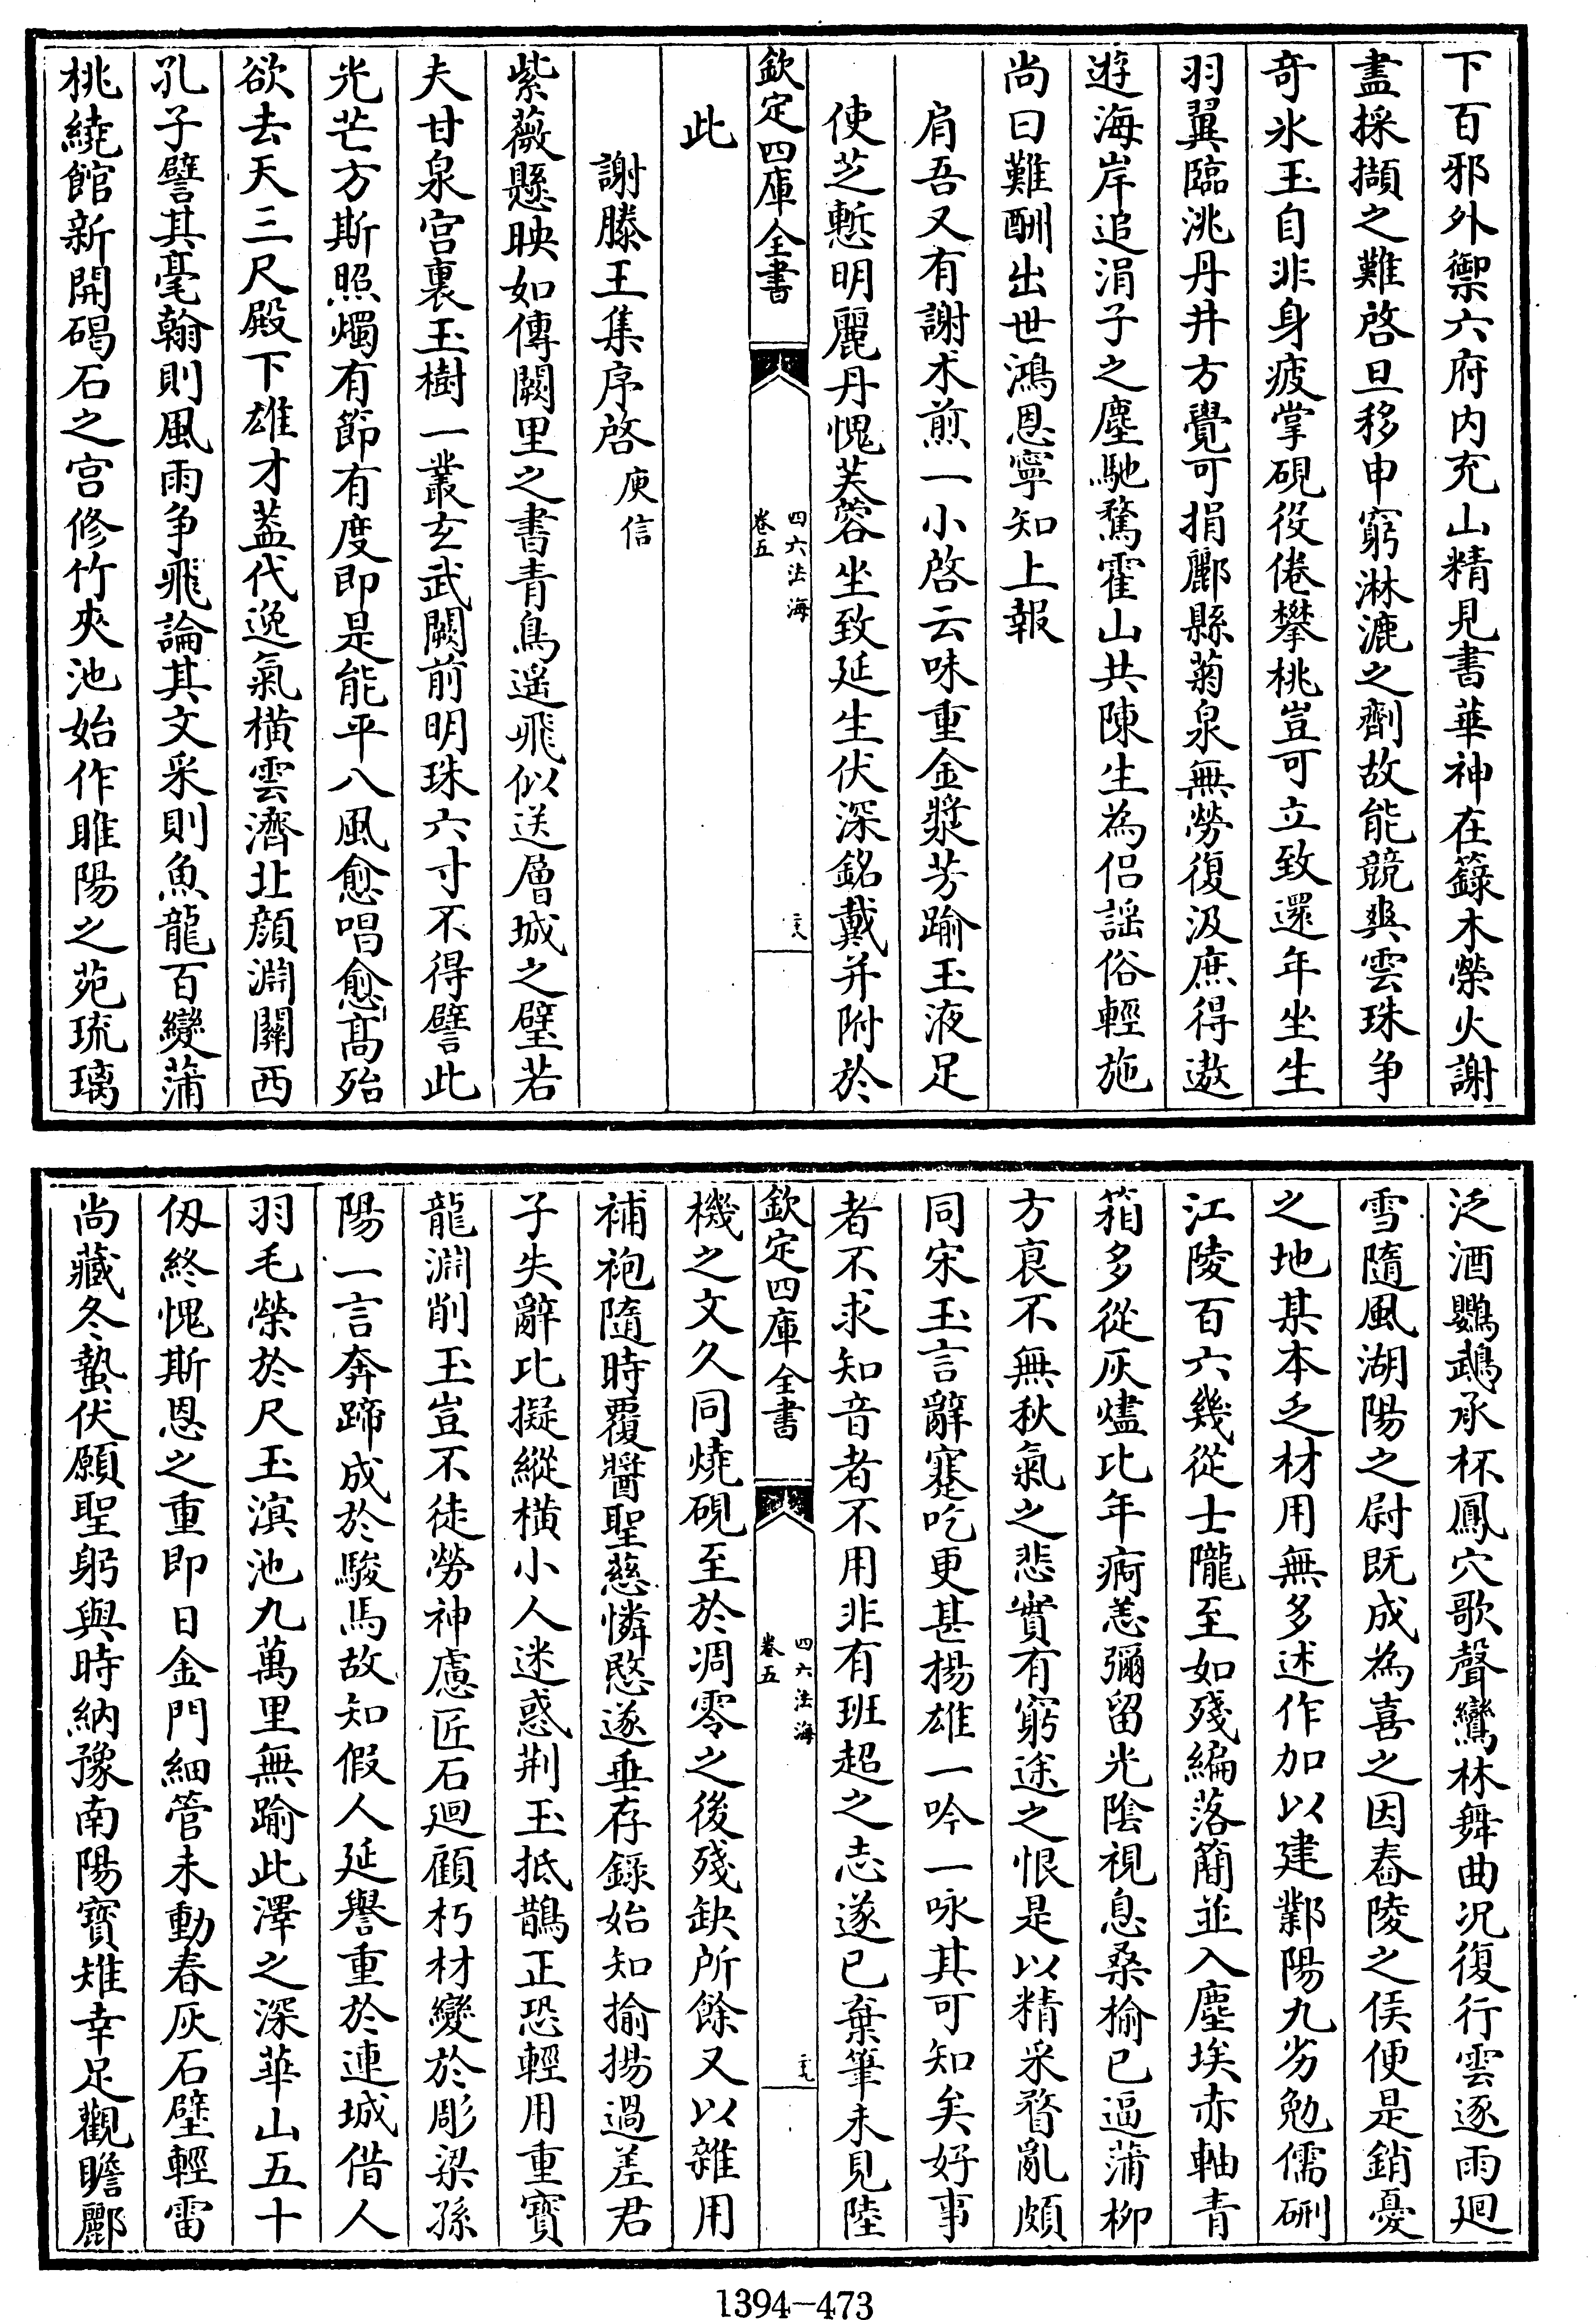 下百邪外禦六府内充山精見書華神在籙木榮火謝
盡採擷之難啓旦移申窮淋漉之劑故能競爽雲珠争
奇氷玉自非身疲掌硯役倦攀桃豈可立致還年坐生
羽翼臨洮丹井方覺可捐酈縣菊泉無勞復汲庶得遨
遊海岸追涓子之塵馳騖霍山共陳生為侣謡俗輕施
尚曰難酬出世鴻恩寧知上報
肩吾又有謝术煎一小啓云味重金漿芳踰玉液足
使芝慙明麗丹愧芙蓉坐致延生伏深銘戴并附於
欽定四庫全書
四六法海
卷五
二六
此
謝滕王集序啓 庾信
紫薇懸映如傳闕里之書青鳥遥飛似送層城之璧若
夫甘泉宫裏玉樹一叢玄武闕前明珠六寸不得譬此
光芒方斯照燭有節有度即是能平八風愈唱愈髙殆
欲去天三尺殿下雄才葢代逸氣橫雲濟北顔淵關西
孔子譬其毫翰則風雨争飛論其文采則魚龍百變蒲
桃繞館新開碣石之宫修竹夾池始作睢陽之苑琉璃
泛酒鸚鵡承杯鳳穴歌聲鸞林舞曲况復行雲逐雨廻
雪隨風湖陽之尉既成為喜之因舂陵之侯便是銷憂
之地某本乏材用無多述作加以建鄴陽九劣勉儒硎
江陵百六幾從士隴至如殘編落簡並入塵埃赤軸青
箱多從灰燼比年痾恙彌留光陰視息桑榆已逼蒲柳
方衰不無秋氣之悲實有窮途之恨是以精采瞀亂頗
同宋玉言辭蹇吃更甚揚雄一吟一咏其可知矣好事
者不求知音者不用非有班超之志遂已棄筆未見陸
欽定四庫全書
四六法海
卷五
機之文久同燒硯至於凋零之後殘缺所餘又以雜用
補袍隨時覆醬聖慈憐愍遂垂存録始知揄揚過差君
子失辭比擬縱橫小人迷惑荆玉抵鵲正恐輕用重寳
龍淵削玉豈不徒勞神慮匠石廻顧朽材變於彫梁孫
陽一言奔蹄成於駿馬故知假人延譽重於連城借人
羽毛榮於尺玉溟池九萬里無踰此澤之深華山五十
仭終愧斯恩之重即日金門細管未動春灰石壁輕雷
尚藏冬蟄伏願聖躬與時納豫南陽寳雉幸足觀瞻酈
1394-473